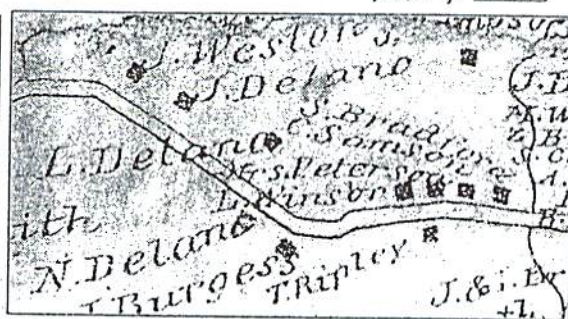 J. Weston
J. Delano
S. Bradford
C. Samson
L. Delano
Mrs. Peterson
L. Winsor
N. Delano
T. Burgess
T. Ripley
J. & i.